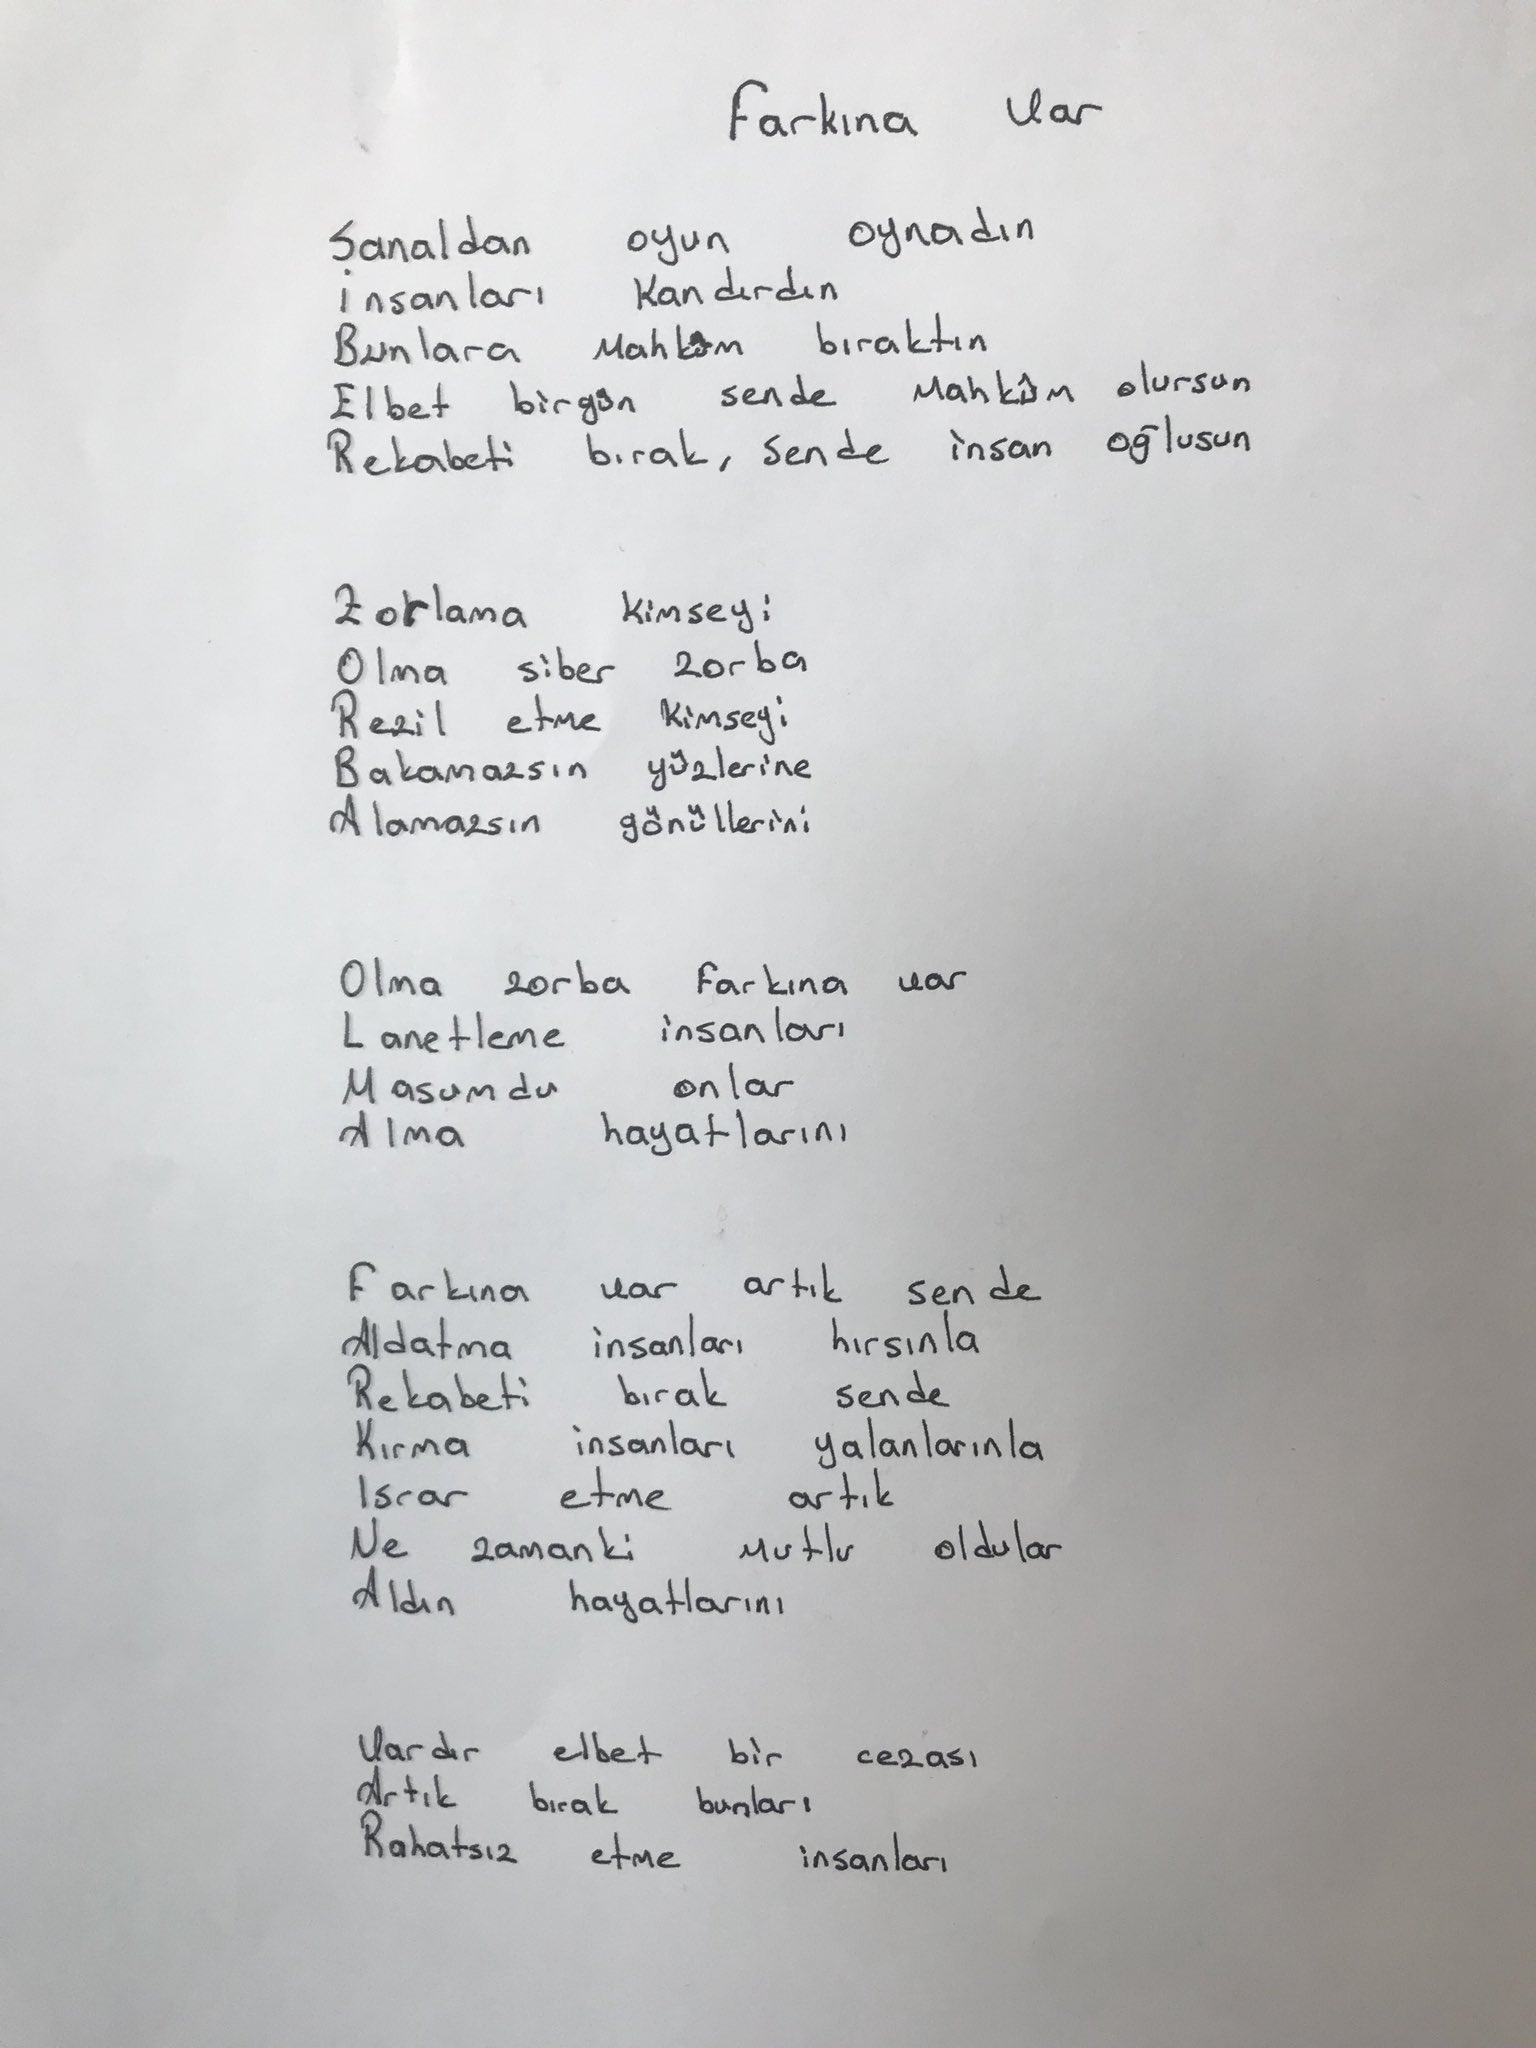 Farkına Var
Sanaldan oyun oynadın
insanları kandırdın
Bunlara Mahkûm bıraktın
Elbet birgün sende Mahkûm olursun
Rekabeti bırak, sende insan oğlusun
Zorlama kimseyi
Olma siber zorba
Rezil etme kimseyi
Bakamazsın yüzlerine
Alamazsın gönüllerini
Olma zorba farkına var
Lanetleme insanları
Masumdu onlar
Alma hayatlarını
Farkına var artık sende
Aldatma insanları hırsınla
Rekabeti bırak sende
Kırma insanları yalanlarınla
Israr etme artık
Ne zamanki mutlu oldular
Aldın hayatlarını
Vardır elbet bir cezası
Artık bırak bunları
Rahatsız etme insanları